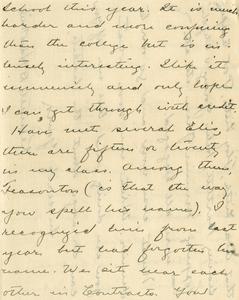 School this year. It is much
harder and more confining
than the college but is in-
tensely interesting. I like it
immensely and only hope
I can get through with credit.
Have met several Elis,
there are fifteen or twenty
in my class. Among them,
Teasonton (is that the way
you spell his name). I
recognized him from last
year, but had forgotten his
name. We sit near each
other in Contracts. You